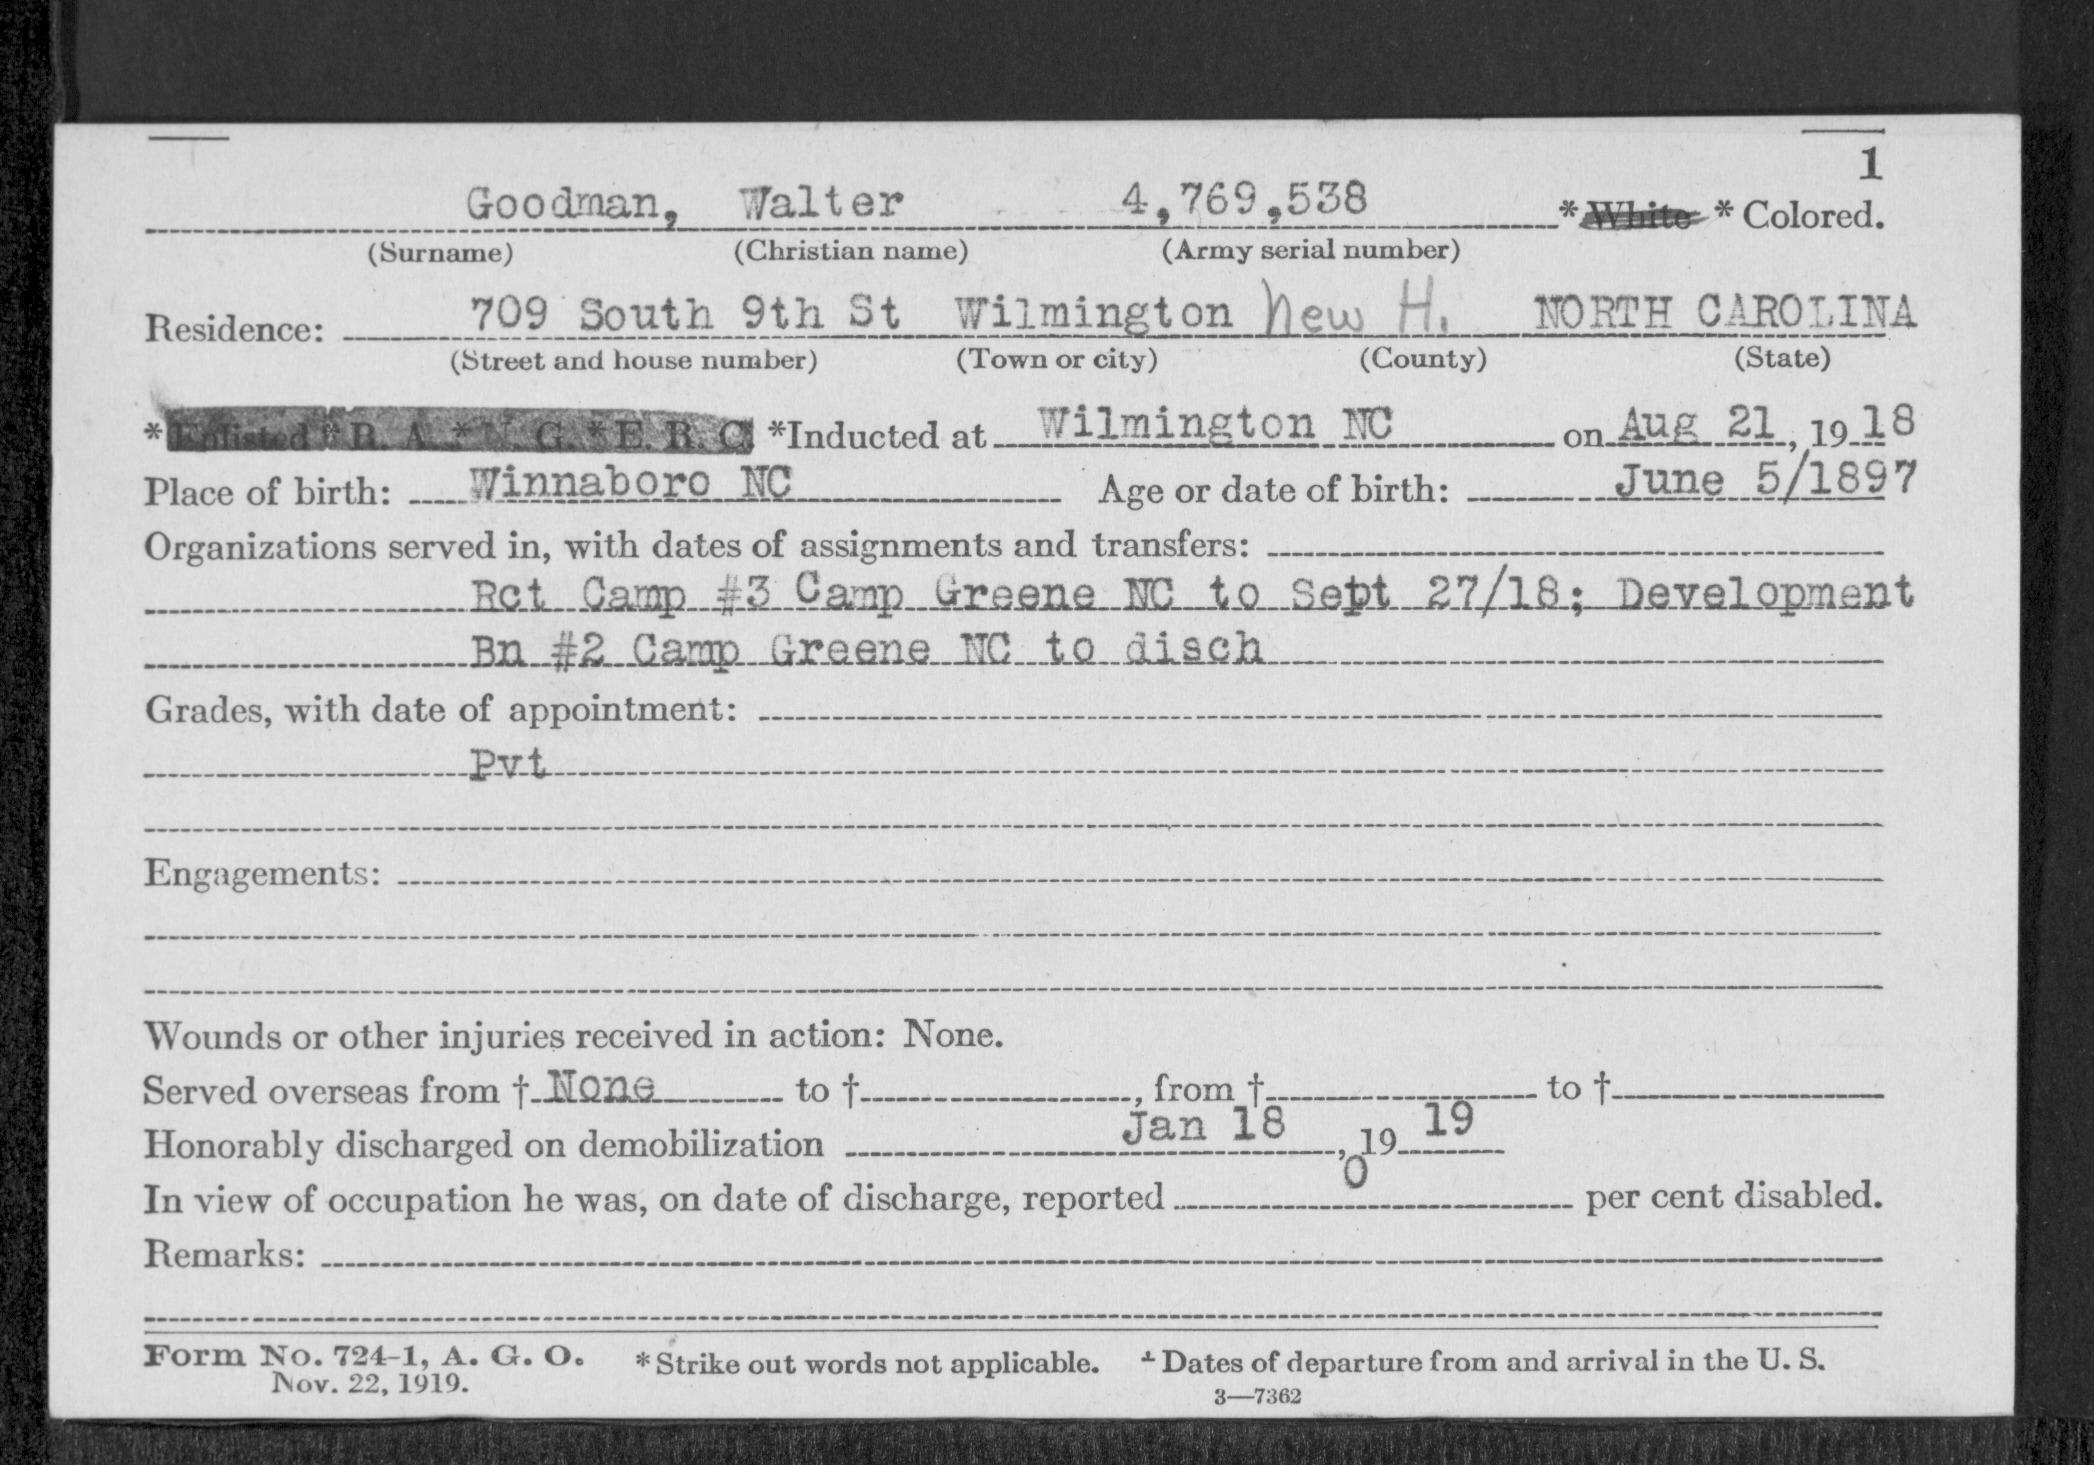 1
Goodman, Walter 4,769,538 *White *Colored.
(Surname) (Christian name) (Army serial number)
Residence: 709 South 9th St Wilmington New H. NORTH CAROLINA
(Street and house number) (Town or city) (County) (State)
*Enlisted *R. A. *N. G. *E. R. C. *Inducted at Wilmington NC on Aug 21, 1918
Place of birth: Winnaboro NC Age or date of birth: June 5/1897
Organizations served in, with dates of assignments and transfers:
Rct Camp #3 Camp Greene NC to Sept 27/18; Development
Bn #2 Camp Greene NC to disch
Grades, with date of appointment:
Pvt
Engagements:
Wounds or other injuries received in action: None.
Served overseas from † None to †, from † to †
Honorably discharged on demobilization Jan 18, 19 19
In view of occupation he was, on date of discharge, reported 0 per cent disabled.
Remarks:
Form No. 724-1, A. G. O. *Strike out words not applicable. † Dates of departure from and arrival in the U. S.
Nov. 22, 1919. 3—7362